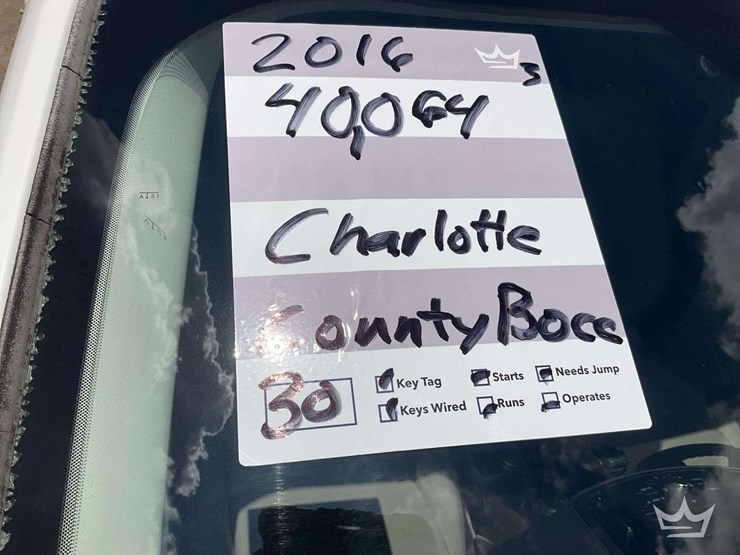 2016
S
40,064
Charlotte
County Bocc
30
Key Tag
Starts
Needs Jump
Keys Wired
Runs
Operates